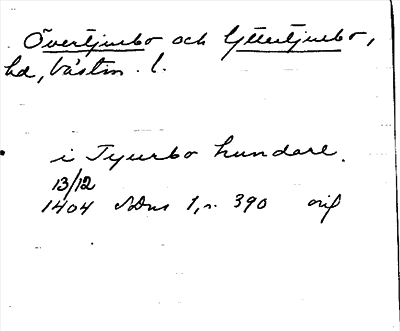 Övertjurbo och Yttertjurbo,
hd, Västm. l.
i Tyurbo hundare.
13/12
1404 SDns 1, s. 390 orig